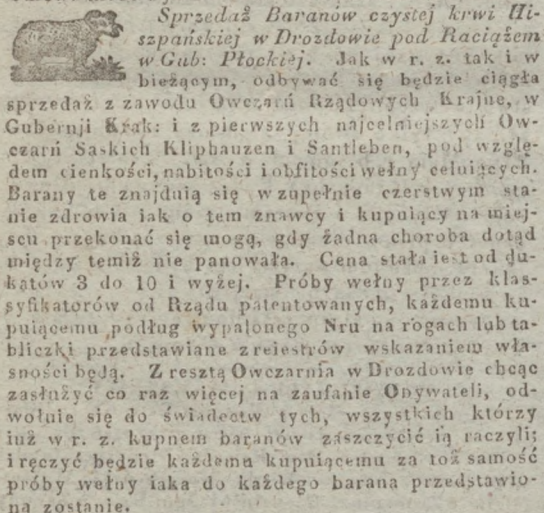 Sprzedaż Baranów czystej krwi Hi-
szpańskiej w Drozdowie pod Raciążem
w Gub: Płockiej. Jak w r. z. tak i w
bieżącym, odbywać się będzie ciągła
sprzedaż z zawodu Owczarń Rządowych Krajne, w
Gubernji Krak: i z pierwszych najcelniejszych Ow-
czarń Saskich Kliphauzen i Santleben, pod wzglę-
dem cienkości, nabitości i obfitości wełny celuiących.
Barany te znajduią się w zupełnie czerstwym sta-
nie zdrowia iak o tem znawcy i kupuiący na miej-
scu przekonać się mogą, gdy żadna choroba dotąd
między temiż nie panowała. Cena stała iest od du-
kątów 3 do 10 i wyżej. Próby wełny przez klas-
syfikatorów od Rządu patentowanych, każdemu ku-
puiącemu podług wypalonego Nru na rogach lub ta-
bliczki przedstawiane z reiestrów wskazaniem wła-
sności będą. Z resztą Owczarnia w Drozdowie chcąc
zasłużyć co raz więcej na zaufanie Obywateli, od-
wołuie się do świadectw tych, wszystkich którzy
iuż w r. z. kupnem baranów zaszczycić ią raczyli;
i ręczyć będzie każdemu kupuiącemu za toż samość
próby wełny iaka do każdego barana przedstawio-
na zostanie.